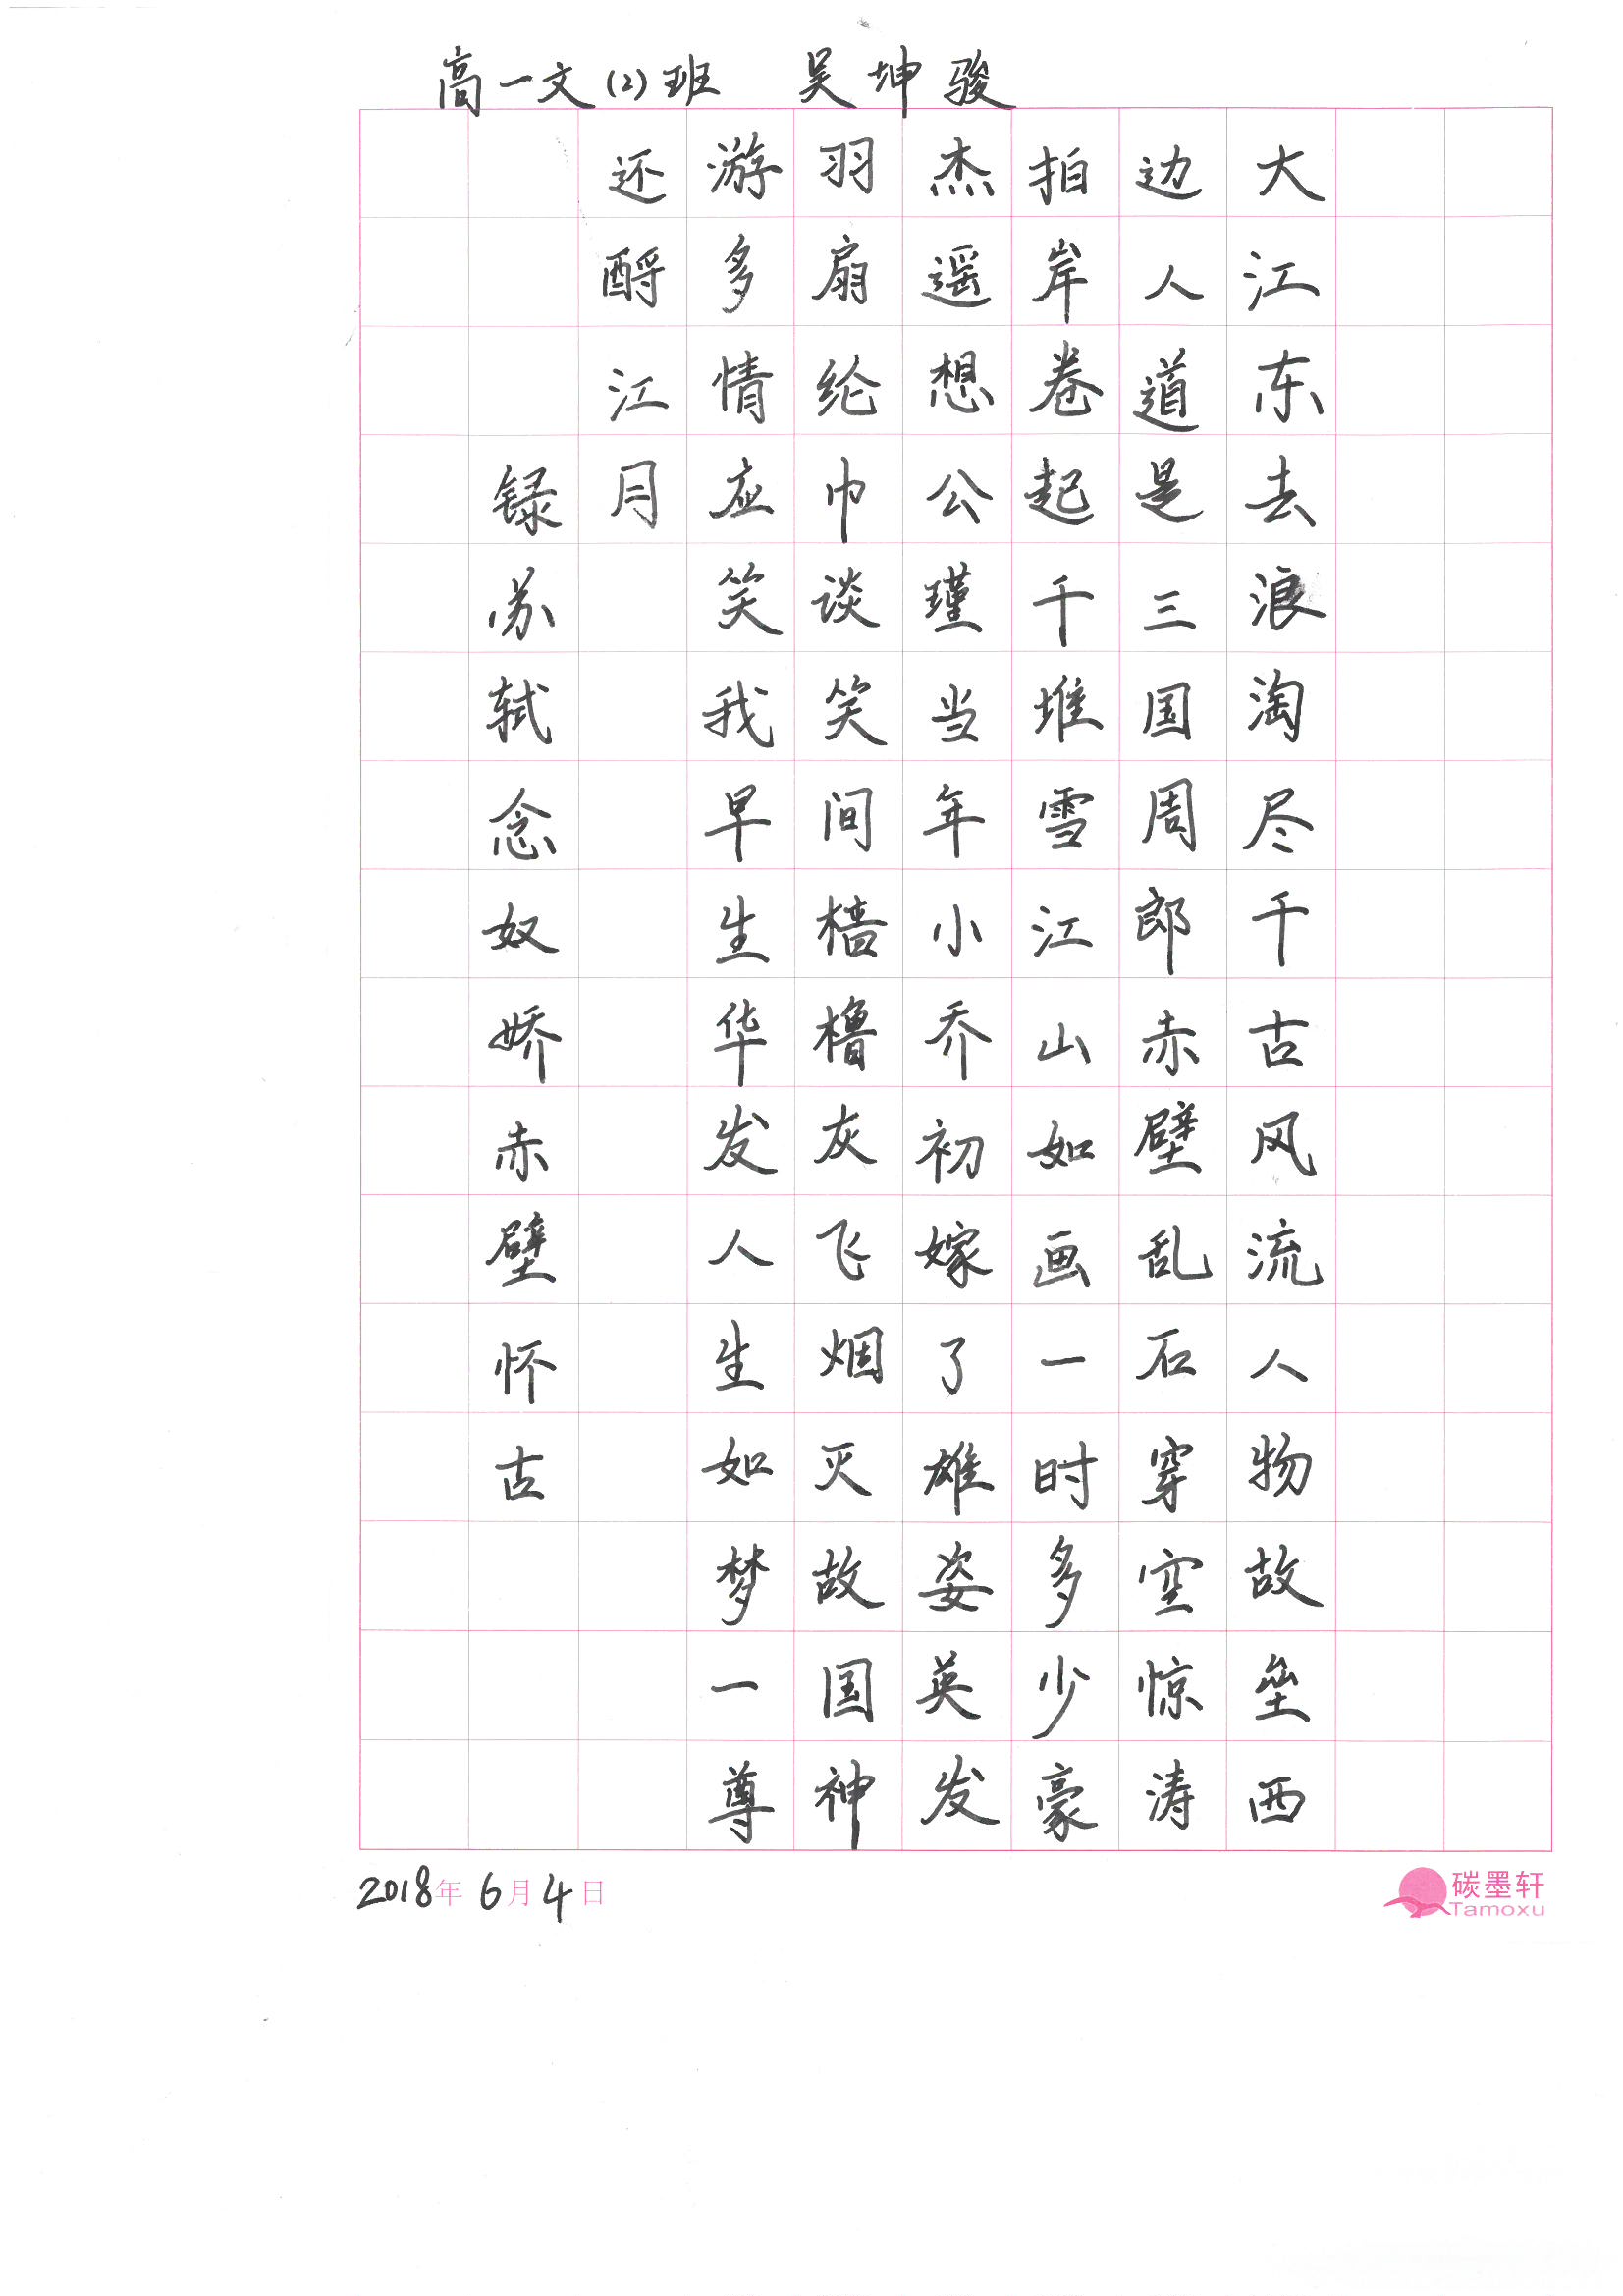 高一文(2)班 吴坤骏
大江东去浪淘尽千古风流人物故垒西
边人道是三国周郎赤壁乱石穿空惊涛
拍岸卷起千堆雪江山如画一时多少豪
杰遥想公瑾当年小乔初嫁了雄姿英发
羽扇纶巾谈笑间樯橹灰飞烟灭故国神
游多情应笑我早生华发人生如梦一尊
还酹江月
録苏轼念奴娇赤壁怀古
2018年6月4日
碳墨轩
Tamoxu